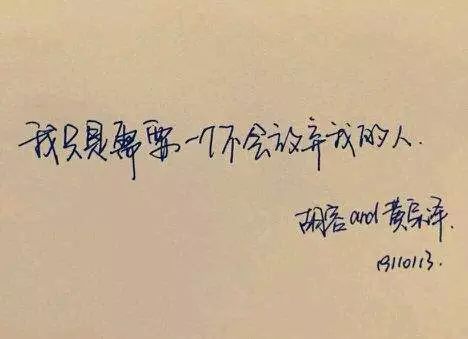 我只是需要一个不会放弃我的人.
胡容and黄宗泽.
19110113.